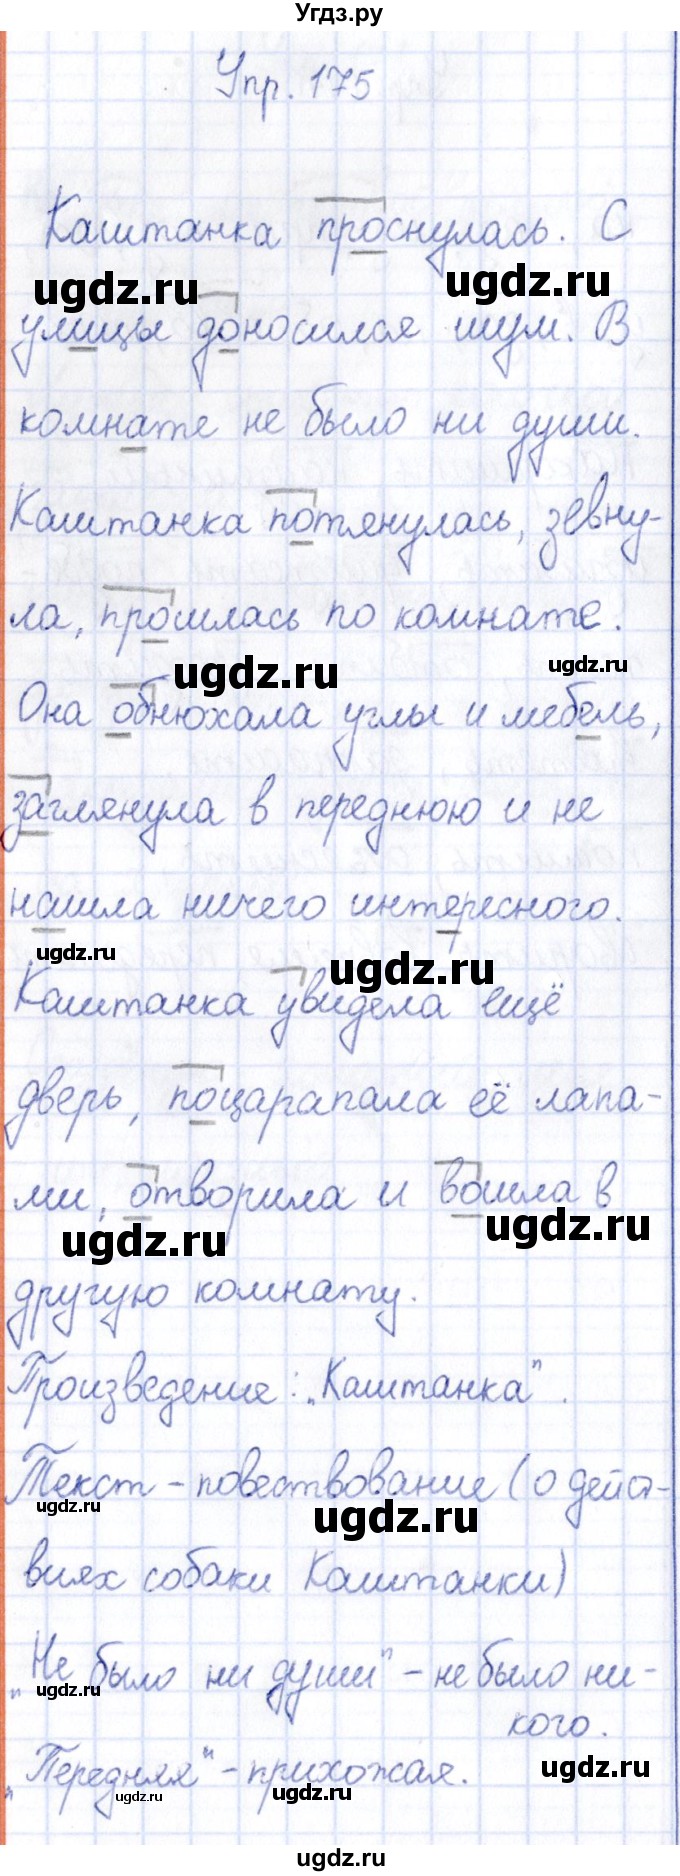 Угдз.ру
Упр. 175
Каштанка проснулась. С
ugdz.ru
ugdz.ru
улицы доносился шум. В
комнате не было ни души.
Каштанка потянулась, зевну-
ла, прошлась по комнате.
ugdz.ru
ugdz.ru
Она обнюхала углы и мебель,
заглянула в переднюю и не
нашла ничего интересного.
ugdz.ru
ugdz.ru
Каштанка увидела ещё
дверь, поцарапала её лапа-
ми, отворила и вошла в
ugdz.ru
ugdz.ru
другую комнату.
Произведение: „Каштанка".
Текст - повествование (о дейст-
ugdz.ru
ugdz.ru
виях собаки Каштанки)
„Не было ни души" - не было ни-
ugdz.ru
кого.
„Передняя" - прихожая.
ugdz.ru
ugdz.ru
ugdz.ru
ugdz.ru